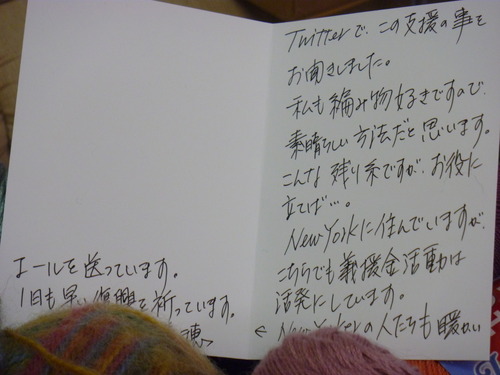 Twitterで、この支援の事を
お聞きしました。
私も編み物好きですので、
素晴らしい方法だと思います。
こんな残り糸ですが、お役に
立てば…。
New Yorkに住んでいますが、
こちらでも義援金活動は
活発にしています。
← New Yorkerの人たちも暖かい
エールを送っています。
1日も早い復興を祈っています。
穂